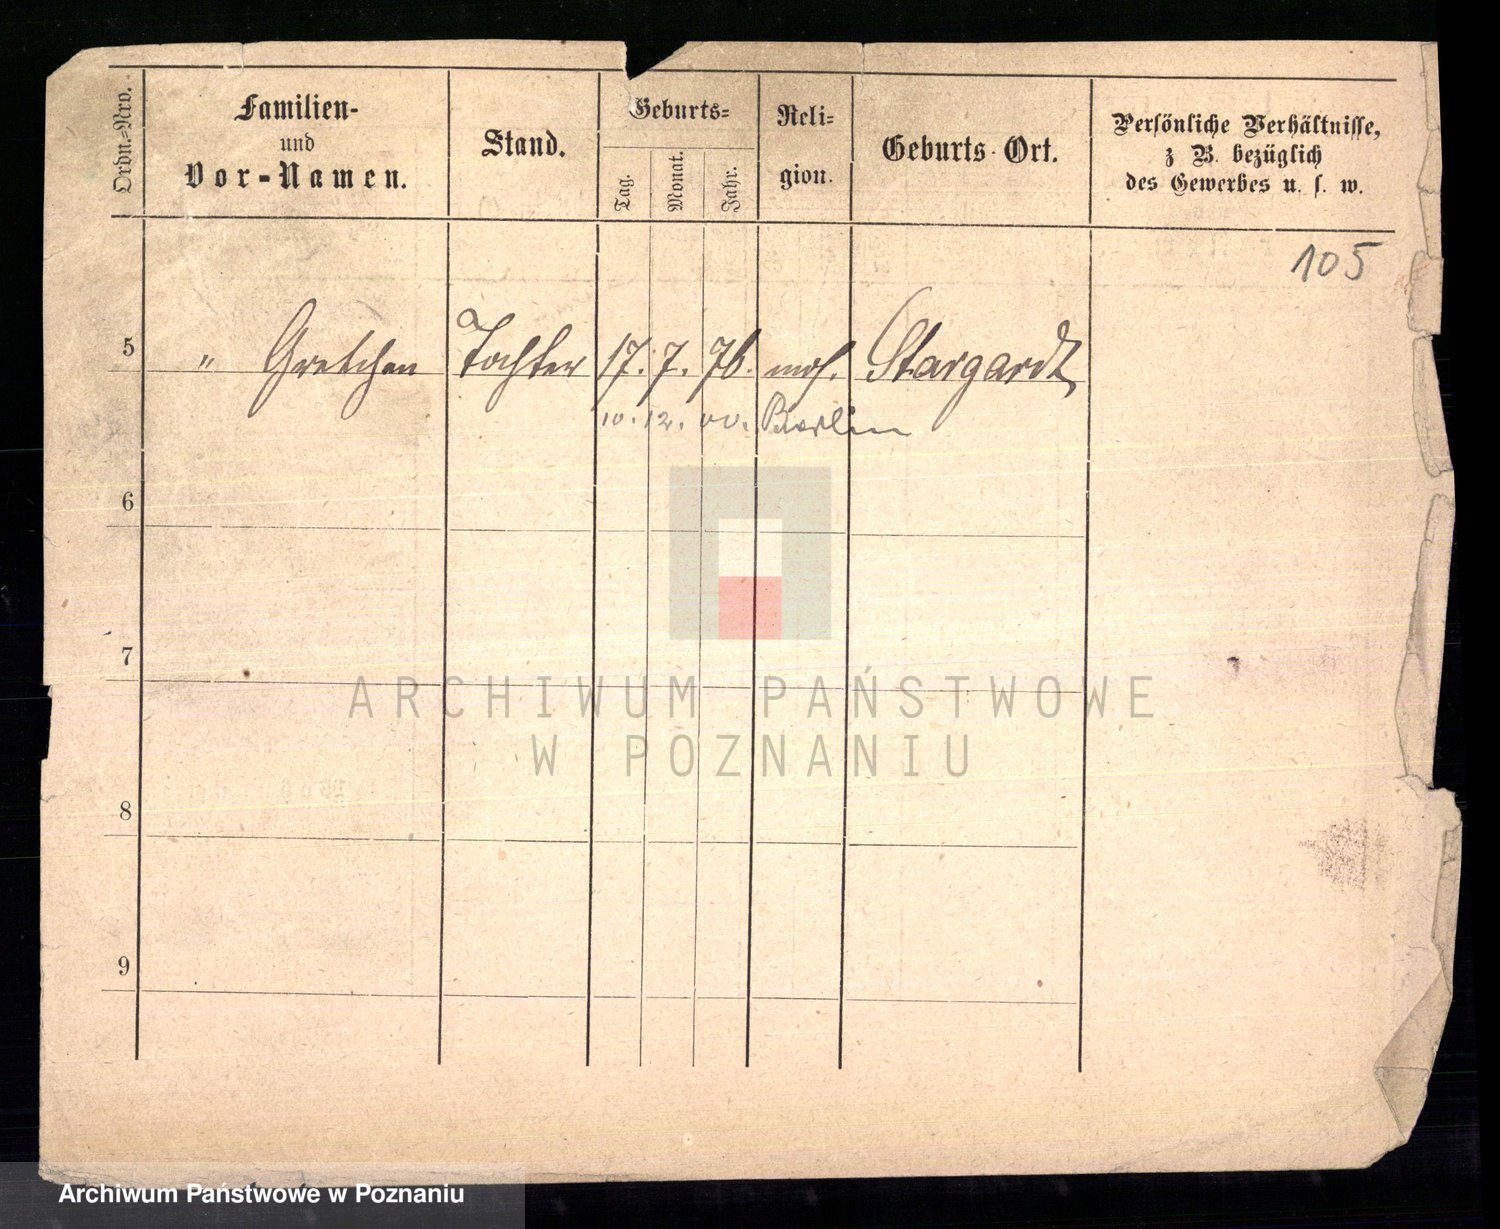 Ordn.-Nro.
Familien-
und
Vor-Namen.
Stand.
Geburts-
Tag.
Monat.
Jahr.
Reli-
gion.
Geburts-Ort.
Persönliche Verhältnisse,
z B. bezüglich
des Gewerbes u. s. w.
105
5 " Gretchen Tochter 17. 7. 76. mos. Stargardt
10. 12. 00. Berlin
6
7
8
9
ARCHIWUM PAŃSTWOWE
W POZNANIU
Archiwum Państwowe w Poznaniu